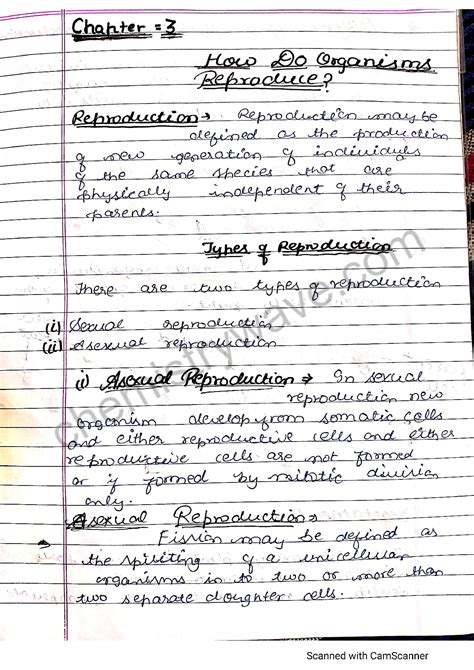 Chapter = 3
How Do Organisms
Reproduce?
Reproduction → Reproduction may be
defined as the production
of new generation of individuals
of the same species that are
physically independent of their
parents.
Types of Reproduction
There are two types of reproduction
(i) Sexual reproduction
(ii) Asexual reproduction
(i) Asexual Reproduction → In sexual
reproduction new
organism develop from somatic cells
and either reproductive cells and either
reproductive cells are not formed
or if formed by mitotic division
only.
Asexual Reproduction →
Fission may be defined as
the spliting of a unicellular
organisms in to two or more than
two separate doughter cells.
chemistrywave.com
Scanned with CamScanner